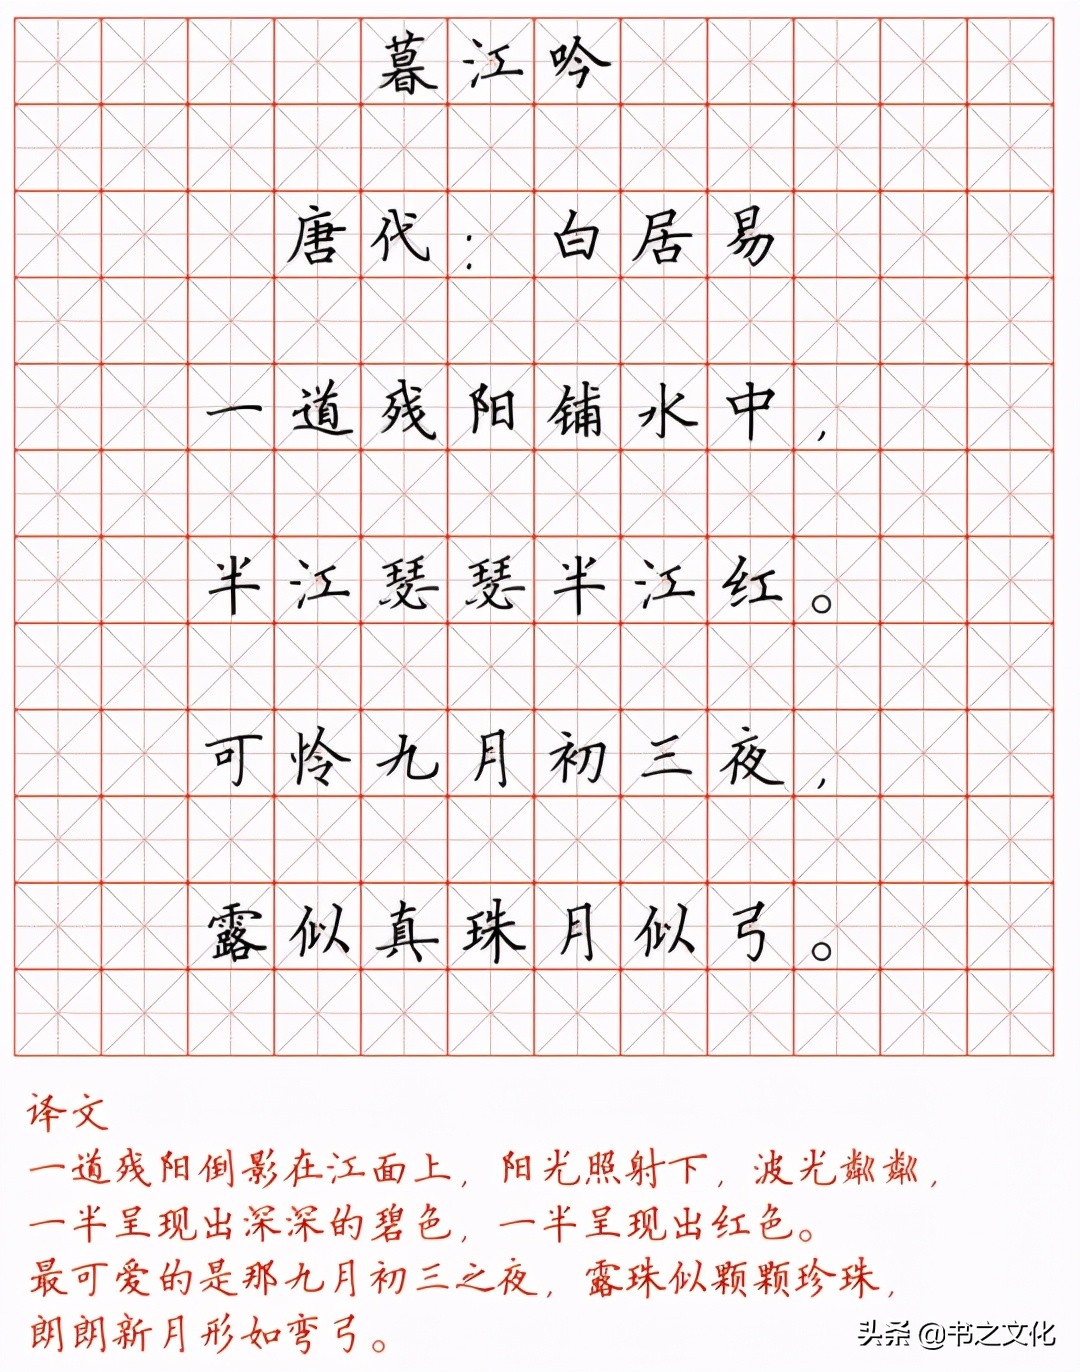 暮江吟
唐代：白居易
一道残阳铺水中，
半江瑟瑟半江红。
可怜九月初三夜，
露似真珠月似弓。
译文
一道残阳倒影在江面上，阳光照射下，波光粼粼，
一半呈现出深深的碧色，一半呈现出红色。
最可爱的是那九月初三之夜，露珠似颗颗珍珠，
朗朗新月形如弯弓。
头条 @书之文化